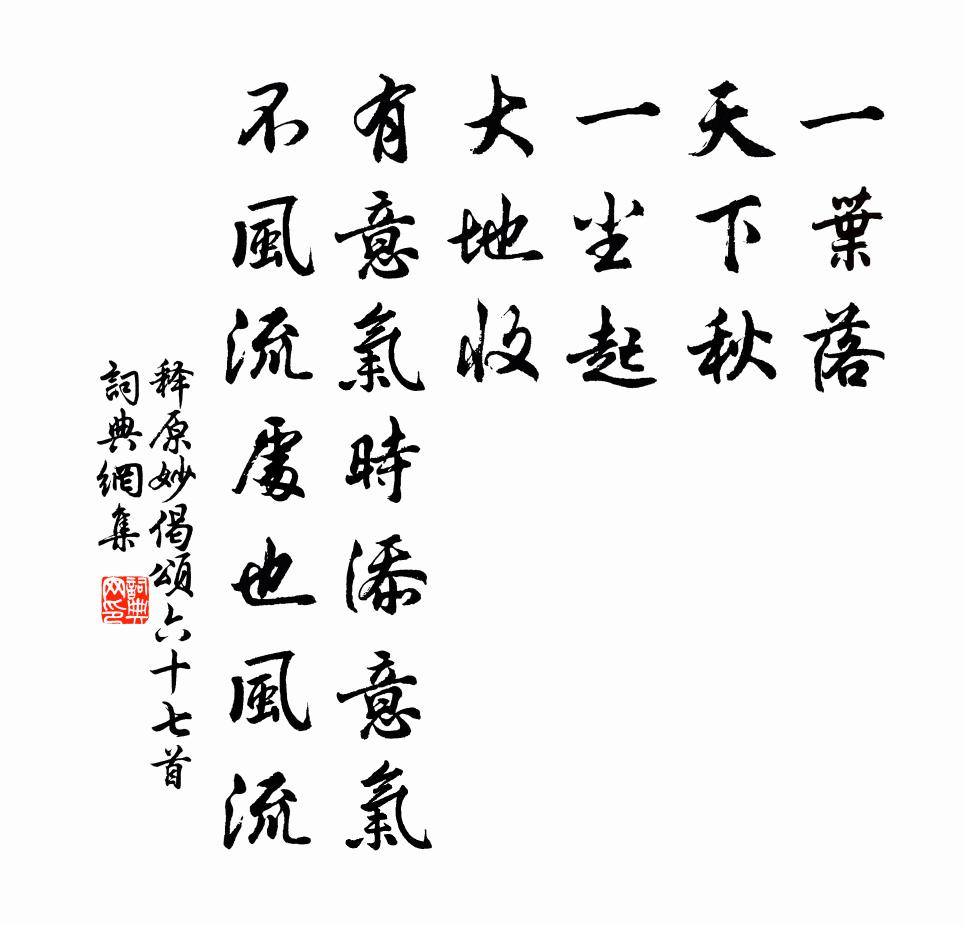 一葉落
天下秋
一尘起
大地收
有意氣時添意氣
不風流處也風流
释原妙偈頌六十七首
詞典網集
詞典网印